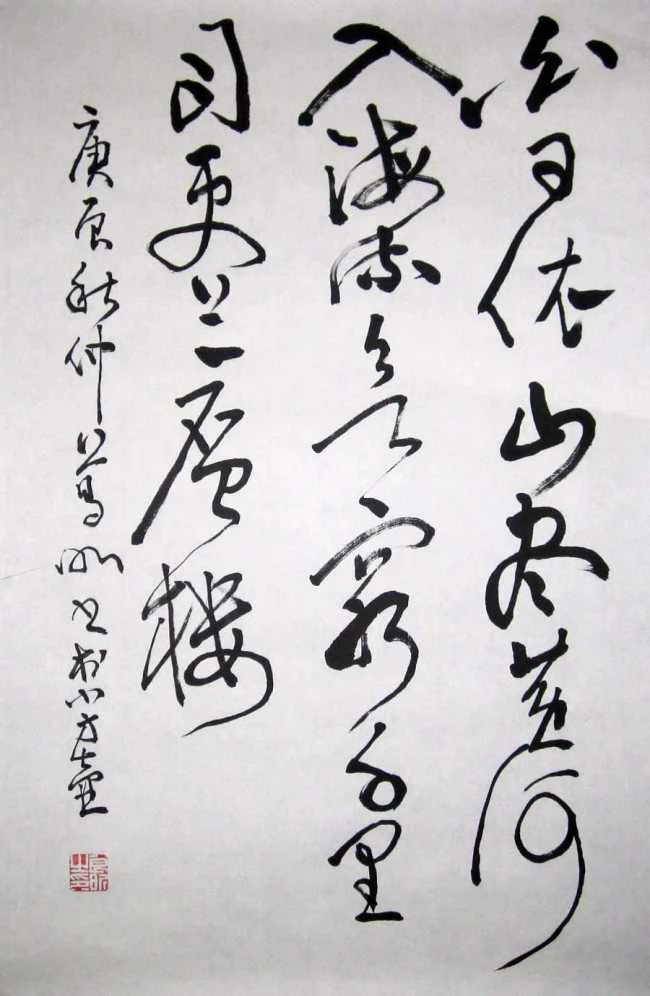 白日依山尽黄河
入海流欲穷千里
目更上一层楼
庚辰秋仲书于小方壶